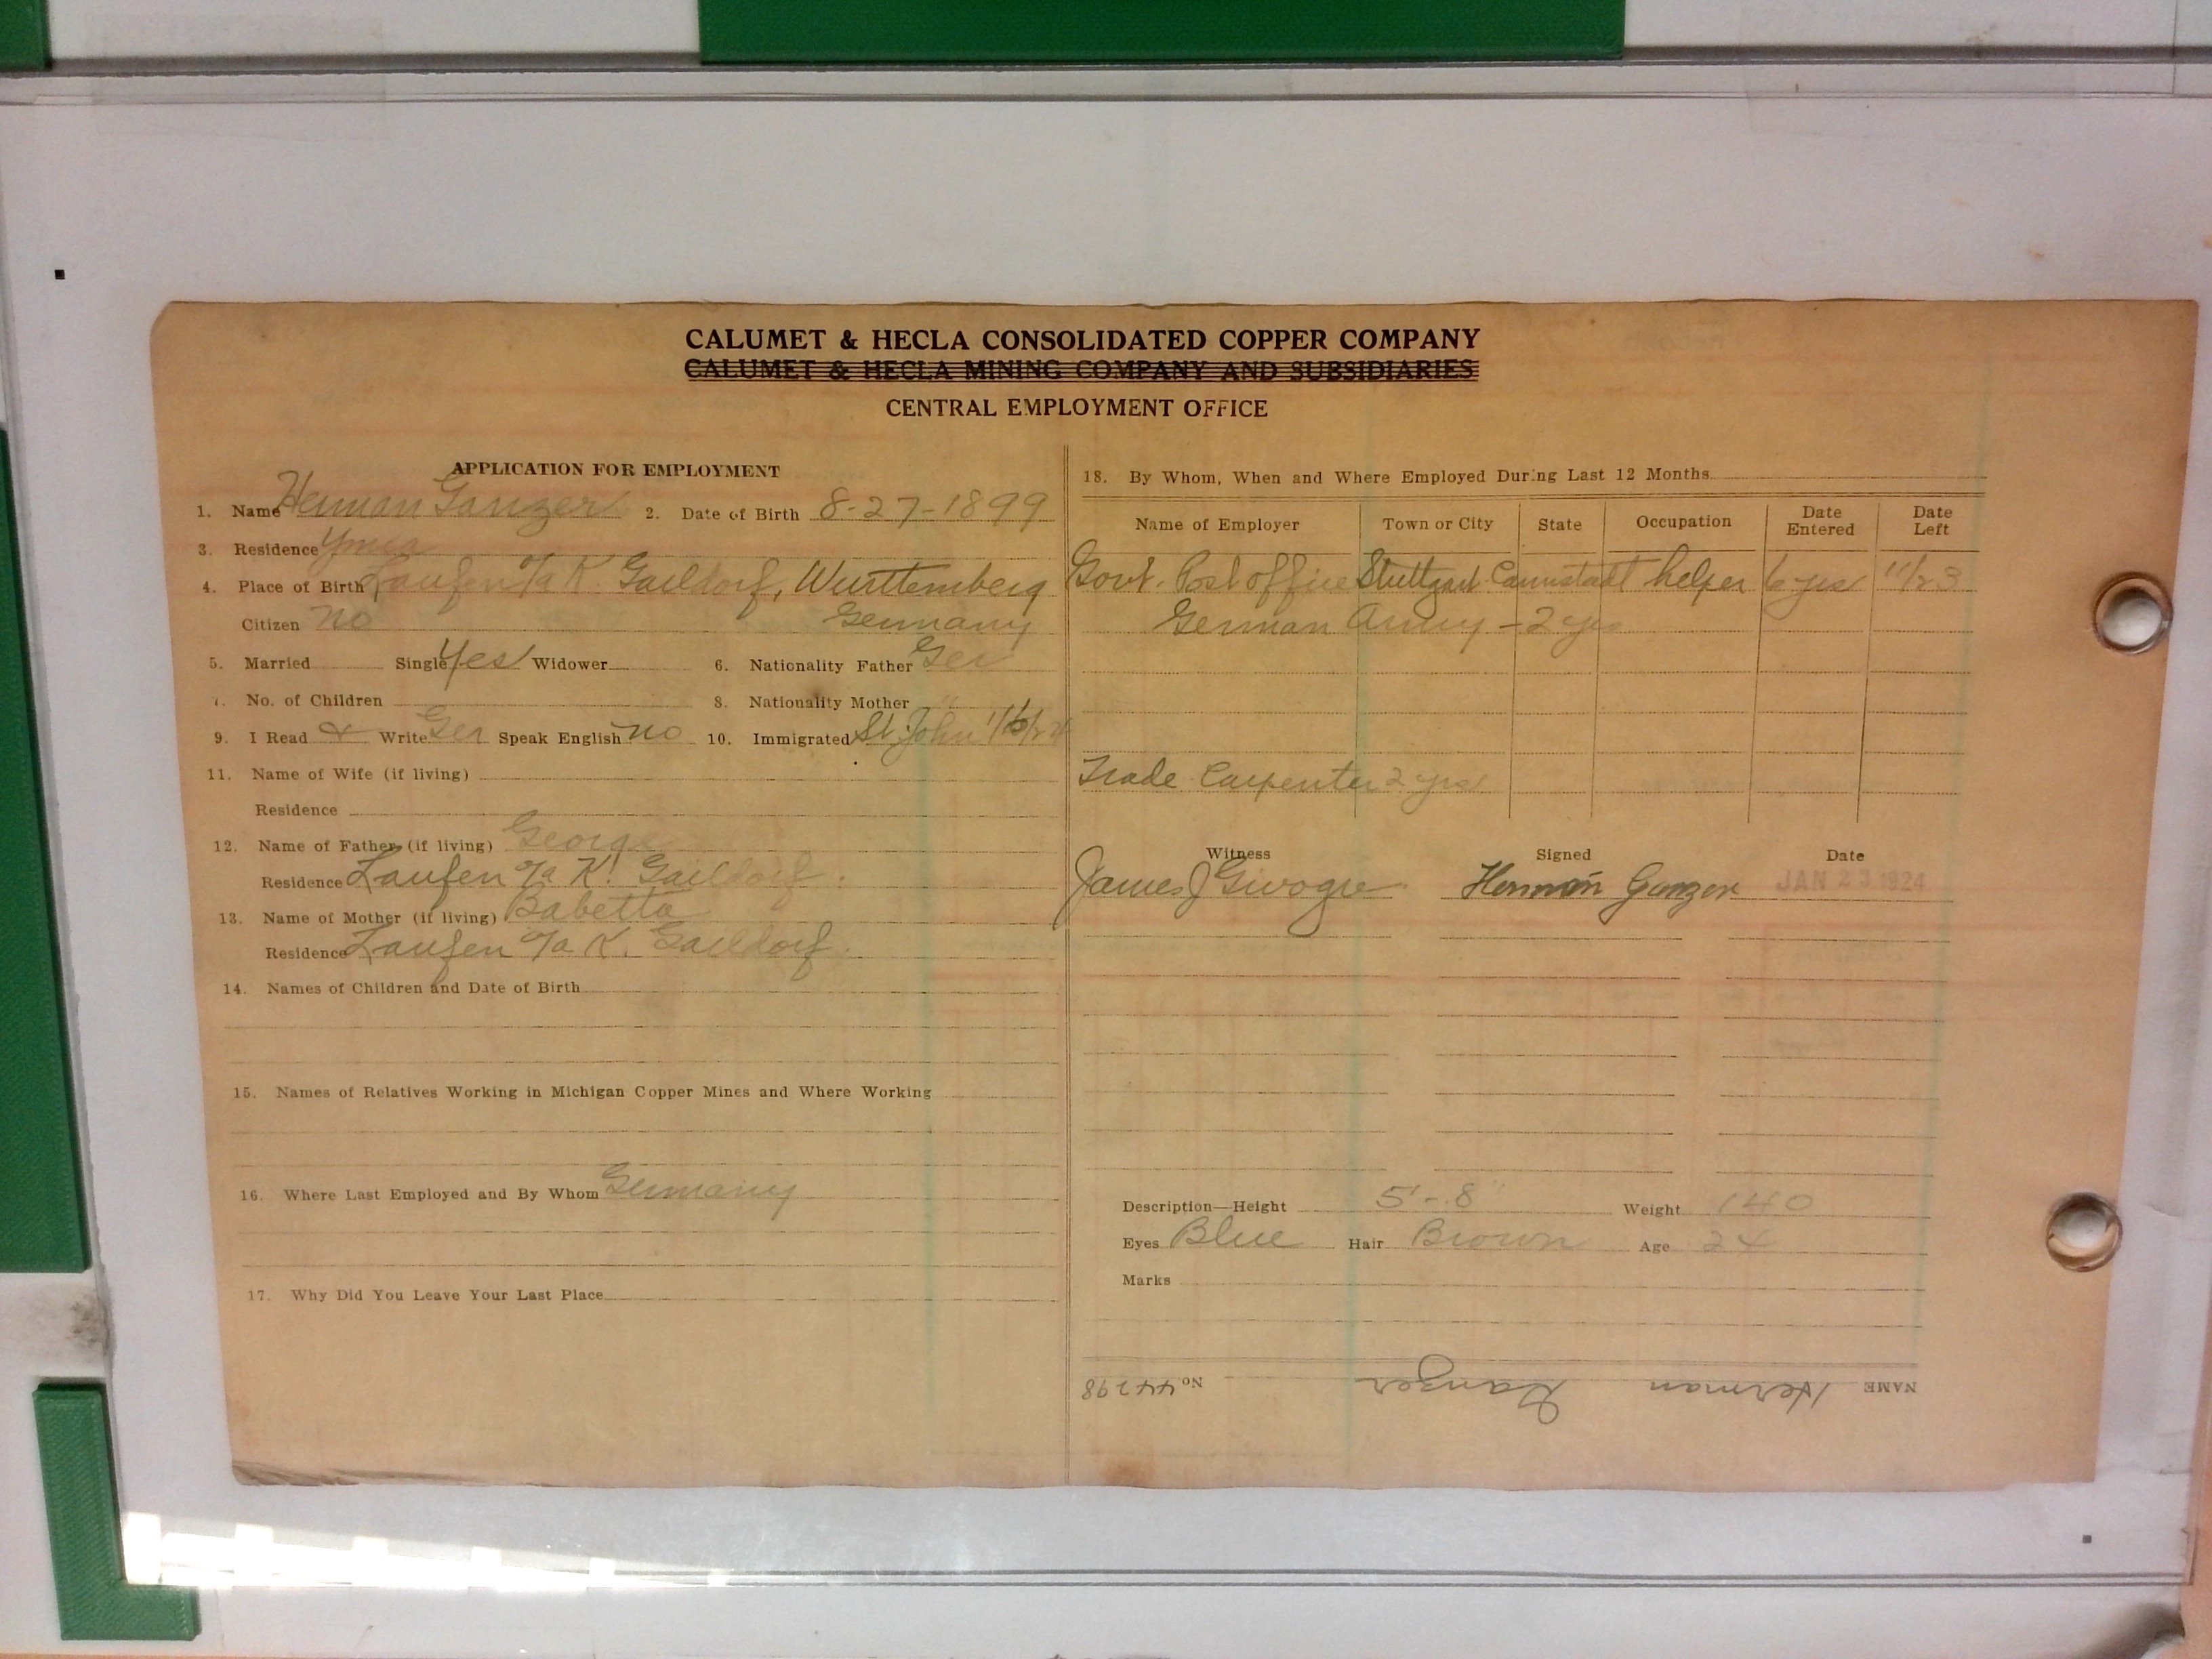 CALUMET & HECLA CONSOLIDATED COPPER COMPANY
CALUMET & HECLA MINING COMPANY AND SUBSIDIARIES
CENTRAL EMPLOYMENT OFFICE
APPLICATION FOR EMPLOYMENT
1. Name Herman Ganzer 2. Date of Birth 8-27-1899
3. Residence
4. Place of Birth Laufen o/a K. Gaildorf, Wurttemberg
Citizen no Germany
5. Married Single Yes Widower 6. Nationality Father Ger
7. No. of Children 8. Nationality Mother "
9. I Read & Write Ger Speak English no 10. Immigrated St. John
11. Name of Wife (if living)
Residence
12. Name of Father (if living) George
Residence Laufen o/a K. Gaildorf.
13. Name of Mother (if living) Babetta
Residence Laufen o/a K. Gaildorf.
14. Names of Children and Date of Birth
15. Names of Relatives Working in Michigan Copper Mines and Where Working
16. Where Last Employed and By Whom Germany
17. Why Did You Leave Your Last Place
18. By Whom, When and Where Employed During Last 12 Months
Name of Employer Town or City State Occupation Date Entered Date Left
Govt. Post office Stuttgart Cannstadt helper 6 yrs 11/23
German Army - 2 yrs
Trade Carpenter 2 yrs
Witness Signed Date
James J Herman Ganzer JAN 23 1924
Description—Height 5'-8" Weight 140
Eyes Blue Hair Brown Age 24
Marks
NAME Herman Ganzer No 44298